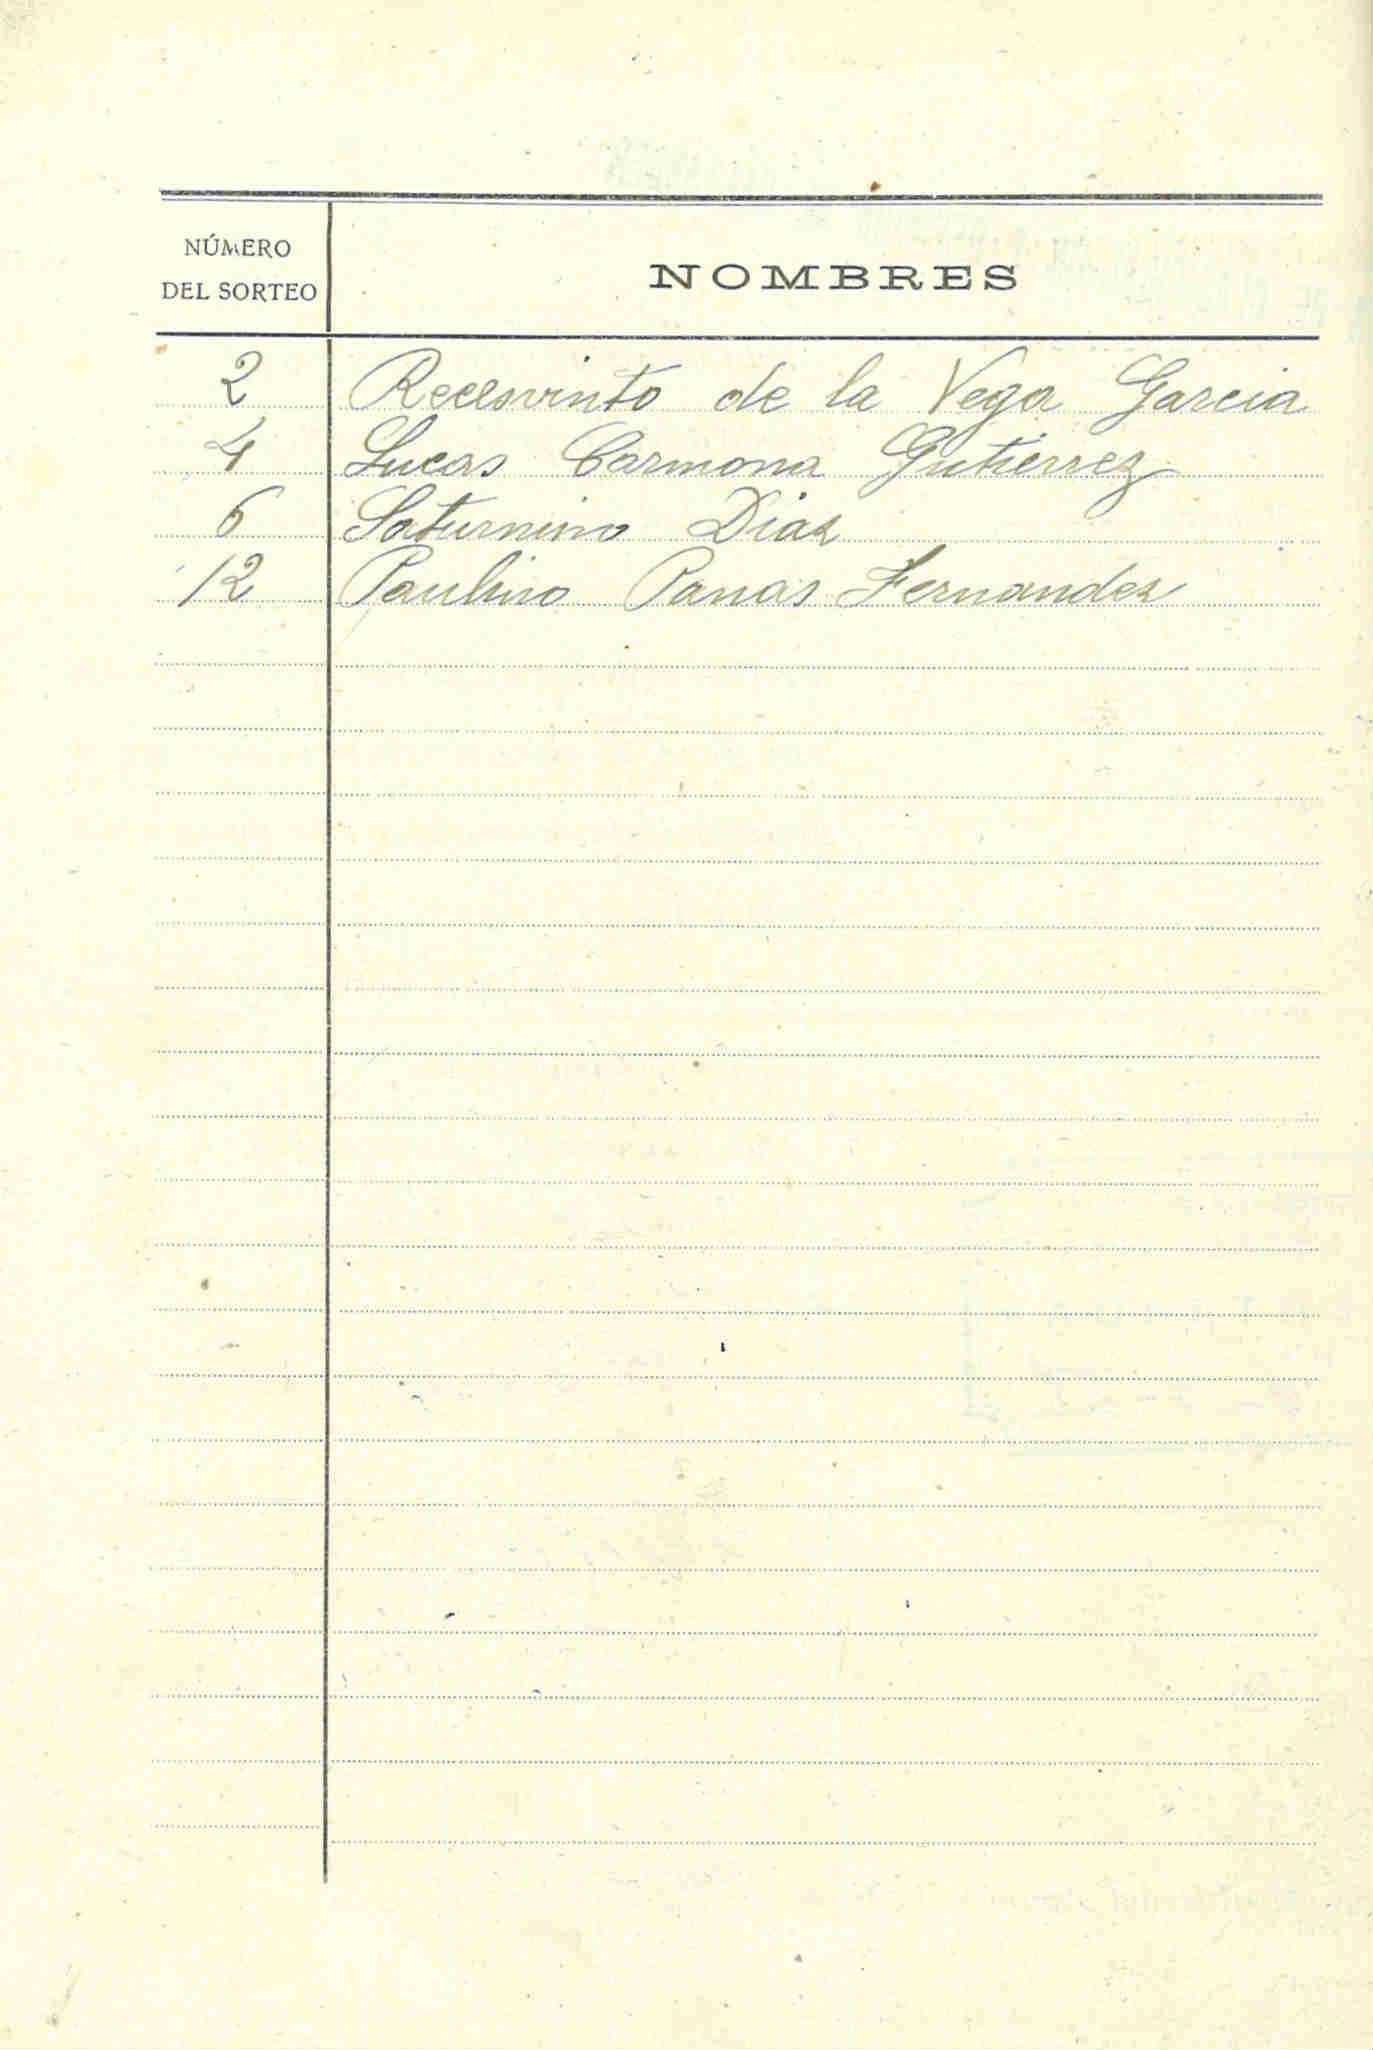 NÚMERO
DEL SORTEO
NOMBRES
2 Recesvinto de la Vega Garcia
4 Lucas Carmona Gutierrez
6 Saturnino Diaz
12 Paulino Fernandez